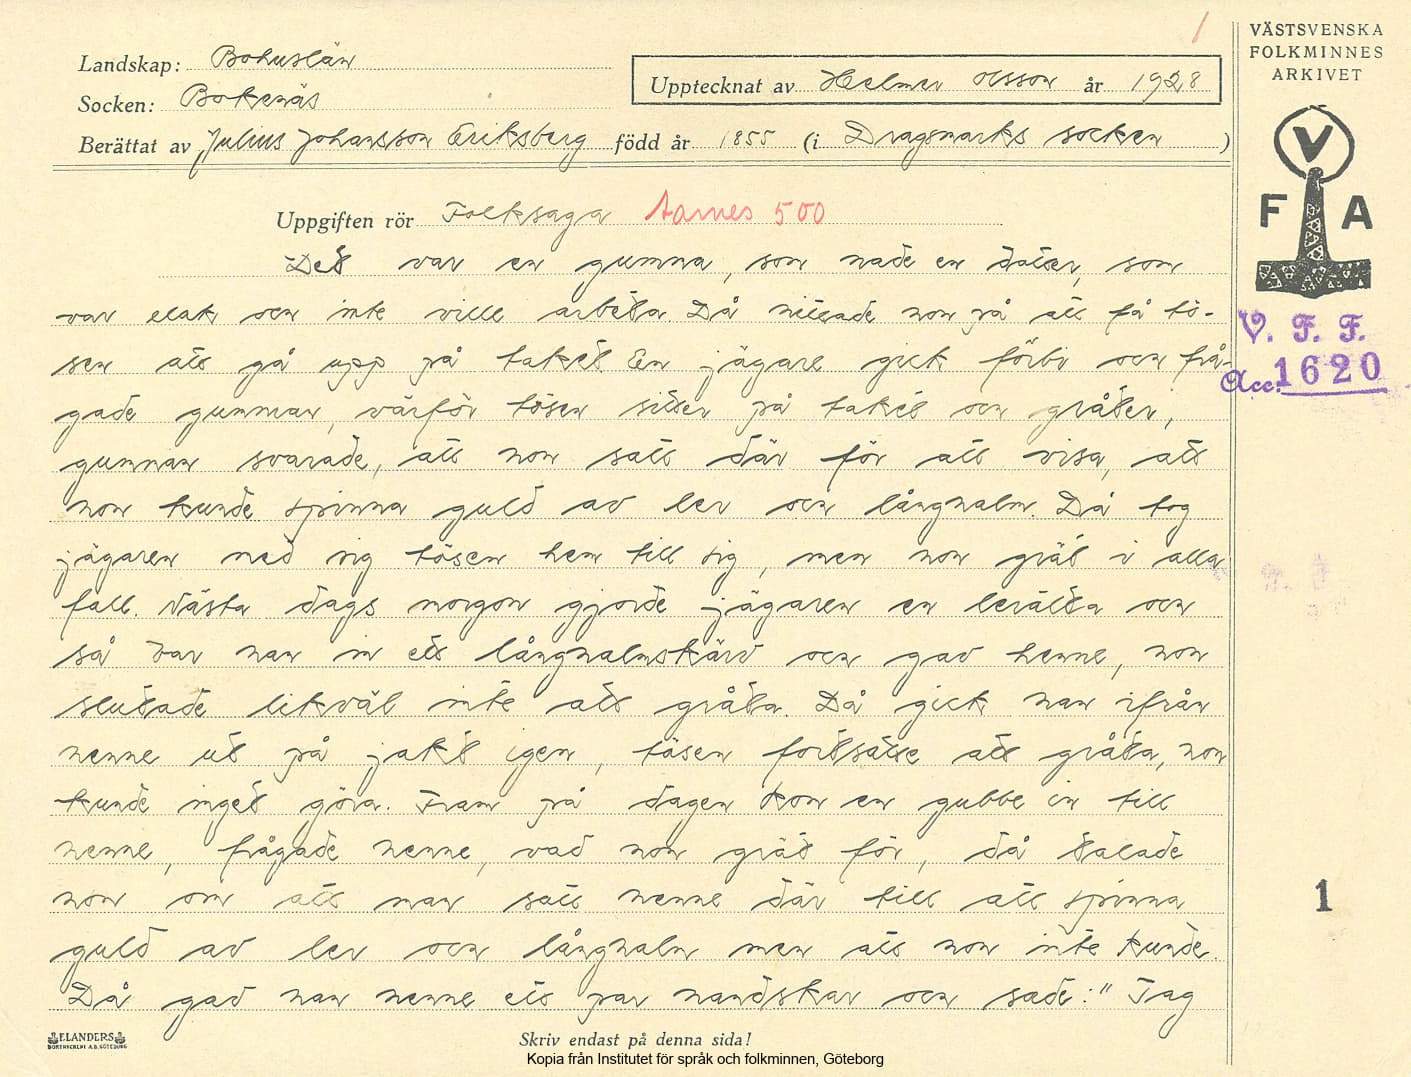 1
VÄSTSVENSKA
FOLKMINNES
ARKIVET
Landskap: Bohuslän
Upptecknat av Helmer Olsson år 1928
Socken: Bokenäs
Berättat av Julius Johansson Eriksberg född år 1855 (i Dragsmarks socken )
V
F A
Uppgiften rör Folksaga Aarnes 500
Det var en gumma, som hade en dotter, som
var elak och inte ville arbeta Då hittade hon på att få tö-
sen att gå upp på taket En jägare gick förbi och frå-
gade gumman, varför tösen sitter på taket och gråter,
gumman svarade, att hon satt där för att visa, att
hon kunde spinna guld av ler och långhalm. Då tog
jägaren med sig tösen hem till sig, men hon grät i alla
fall. Nästa dags morgon gjorde jägaren en lerälta och
så bar han in ett långhalmskärv och gav henne, hon
slutade likväl inte att gråta. Då gick han ifrån
henne ut på jakt igen, tösen fortsatte att gråta, hon
kunde inget göra. Fram på dagen kom en gubbe in till
henne, frågade henne, vad hon grät för, då talade
hon om att man satt henne där till att spinna
guld av ler och långhalm men att hon inte kunde.
Då gav han henne ett par handskar och sade: " Tag
V. F. F.
Acc. 1620
1
ELANDERS
BOKTRYCKERI A.B. GÖTEBORG
Skriv endast på denna sida!
Kopia från Institutet för språk och folkminnen, Göteborg